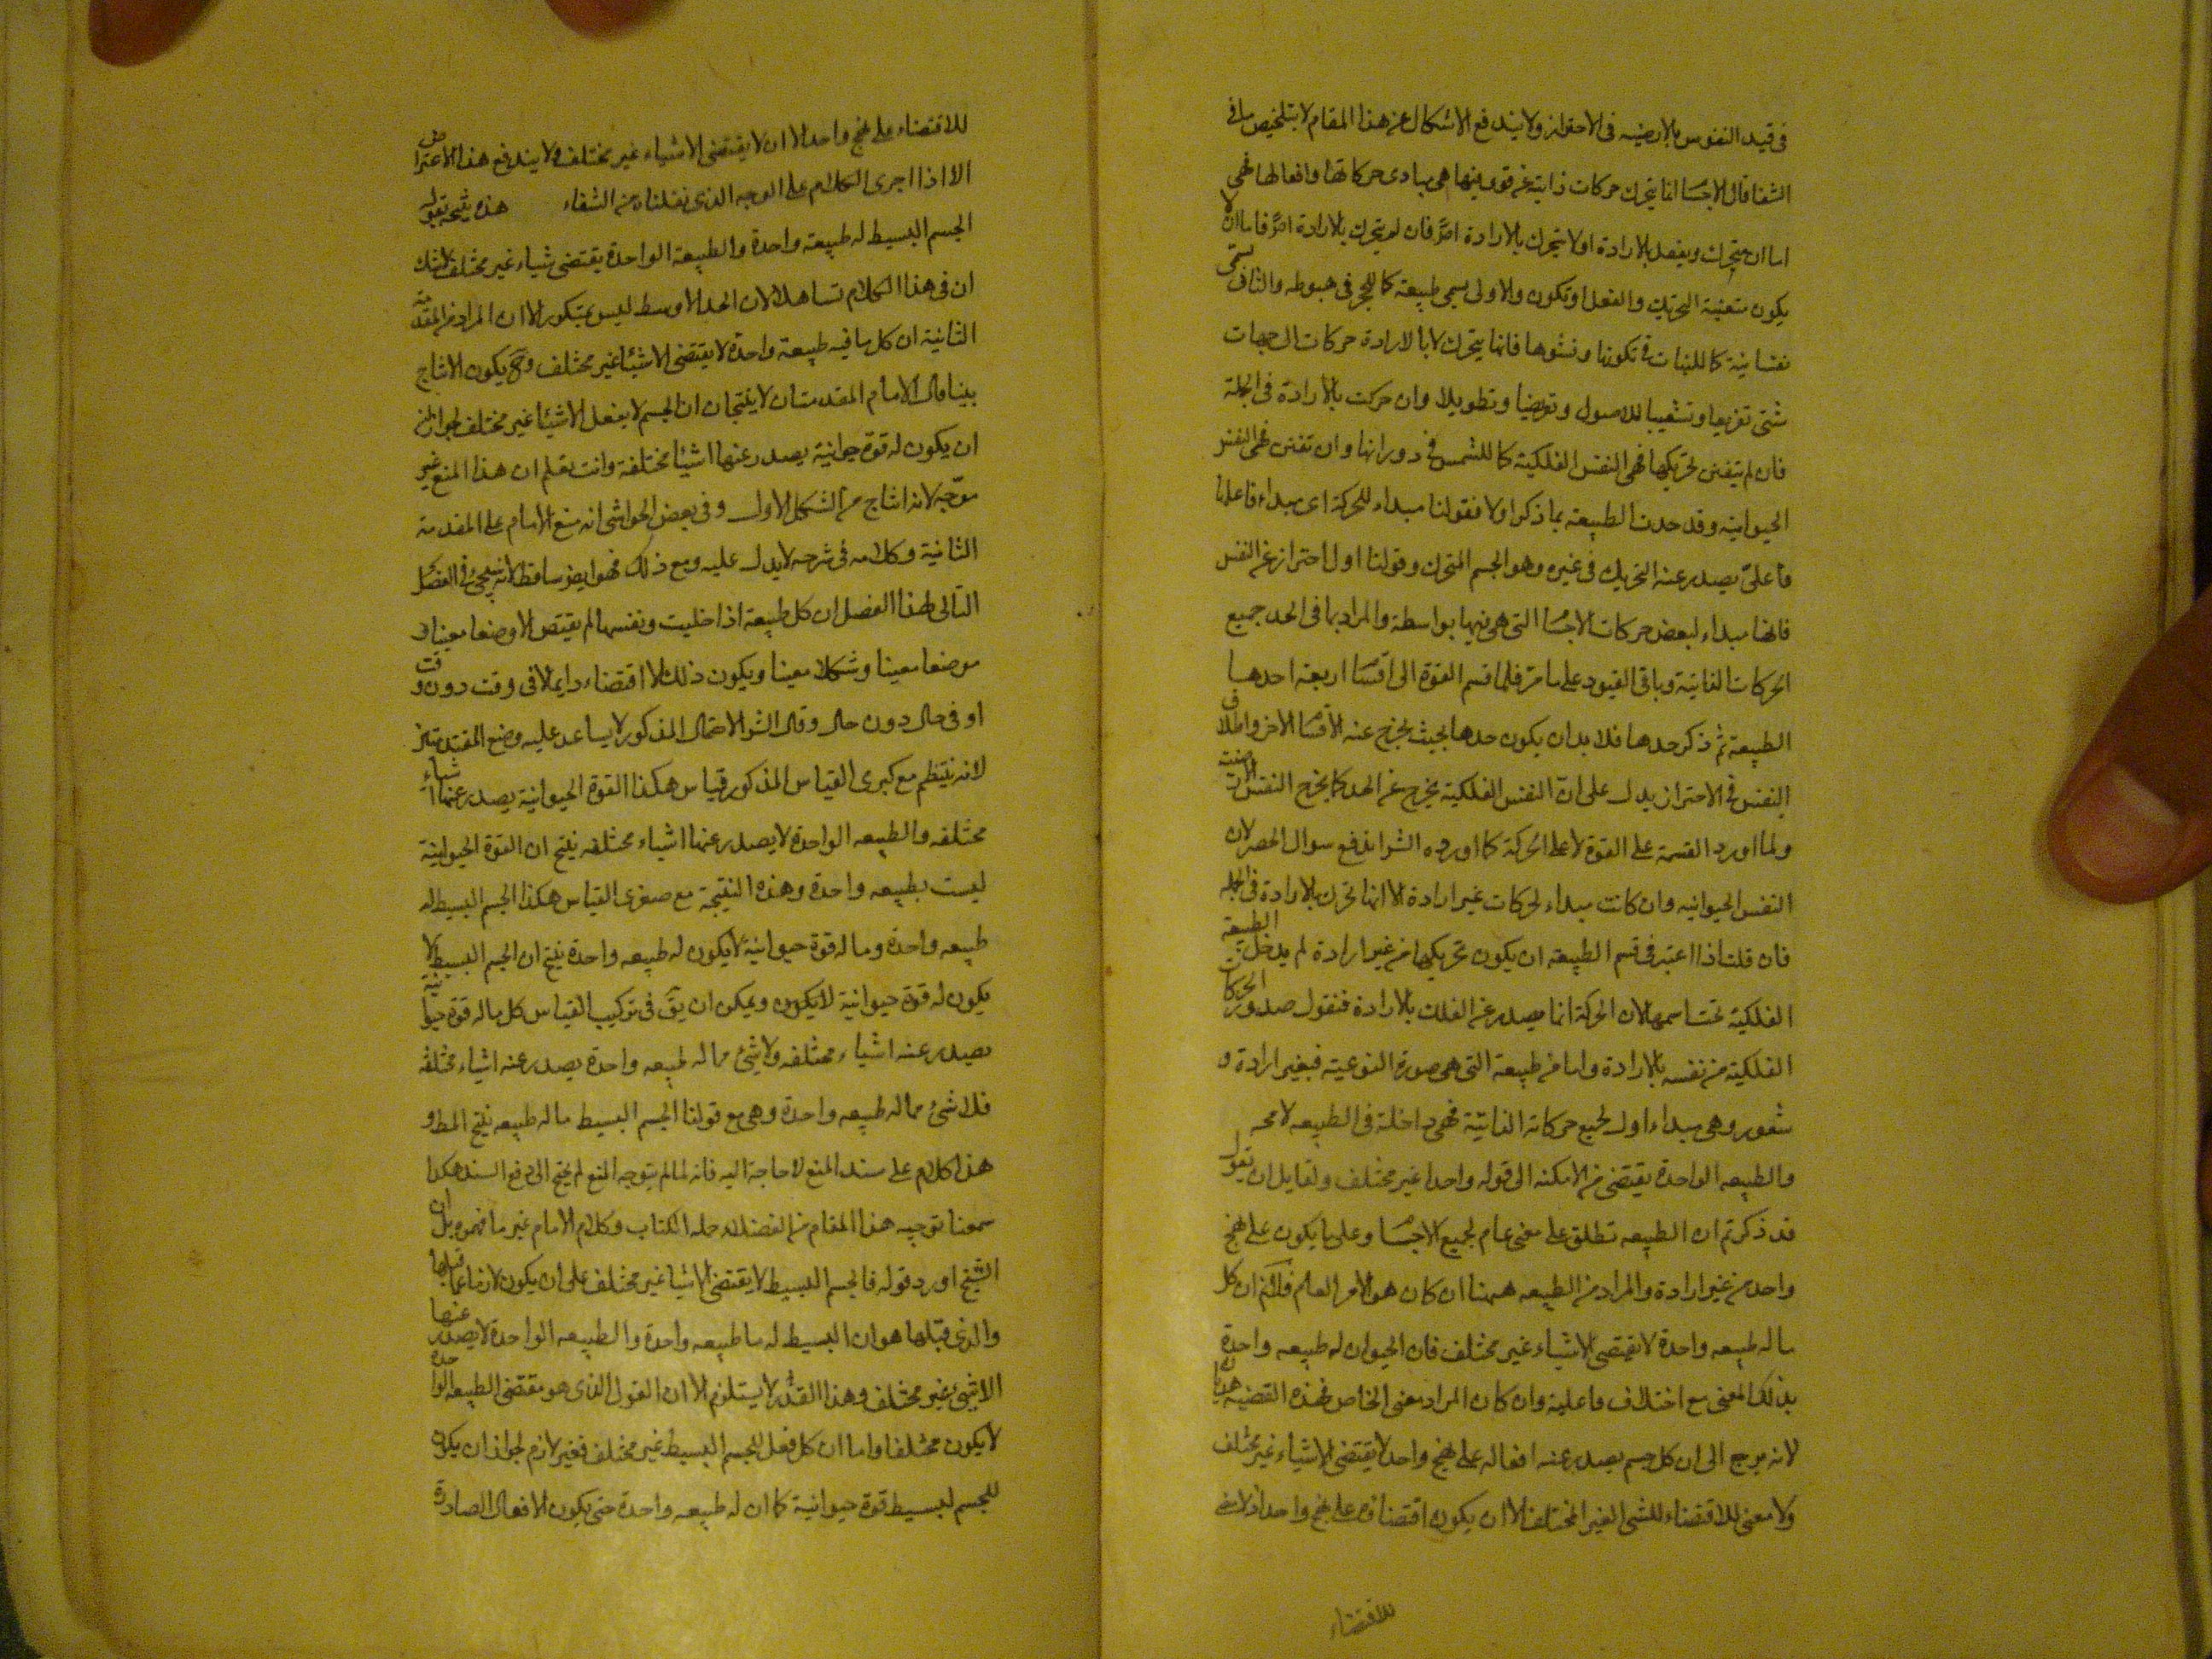 في قيد النفوس بالارضيه في الاحتراز ولا يندفع الاشكال عن هذا المقام الا بتلخيص ما في
الشفا قال الاجسا انما يتحرك حركات ذاتيه عن قوى فيها هي مبادى حركاتها وافعالها فهي
اما ان يتحرك ويفعل بالارادة او لا يتحرك بالارادة فان لم يتحرك بالارادة فاما ان لا
يكون متعينة التحريك والفعل او يكون والاولى يسمى طبيعة كما للحجر في هبوطه والثاني تسمى
نفسانية كما للنبات في تكونها ونشوها فانما يتحرك لا بالارادة حركات الى جهات
شتى تفريعا وتشعيبا للاصول وتعريضا وتطويلا وان حركت بالارادة في الجملة
فان لم يتفنن تحريكها فهي النفس الفلكية كما للشمس في دورانها وان تفنن فهي النفس
الحيوانيه وقد حدت الطبيعة بما ذكر اولا فقولنا مبداء للحركة اى مبداء فاعليا
فاعلى يصدر عنه التحريك في غيره وهو الجسم المتحرك وقولنا اول احتراز عن النفس
فانها مبداء لبعض حركات الاجسا التي هي فيها بواسطة والمراد بما في الحد جميع
الحركات الذاتية وباقى القيود على ما مر فلما قسم القوة الى اقسا اربعة احدها
الطبيعة ثم ذكر حدها فلا بد ان يكون حدها بحيث يخرج عنه الاقسا الاخر واطلاق
النفس في الاحتراز يدل على ان النفس الفلكية يخرج عن الحد كما يخرج النفس الارضية
ولما اورد القسمة على القوة لا على الحركة كما اورده الش اندفع سوال الحصر لان
النفس الحيوانيه وان كانت مبداء لحركات غير ارادة الا انها تحرك بالارادة في الجمله
فان قلت اذا اعتبر في قسم الطبيعه ان يكون تحريكها من غير ارادة لم يدخل الطبيعة
الفلكية تحت اسمها لان الحركة انما يصدر عن الفلك بالارادة فنقول صدور الحركات
الفلكية من نفسه بالارادة واما من طبيعة التي هي صورة النوعيته فبغير ارادة و
شعور وهي مبداء اول لجميع حركاته الذاتية فهي داخلة في الطبيعه لا محه
والطبيعه الواحدة يقتضى من الامكنه الى قوله واحدا غير مختلف ولقايل ان يقول
قد ذكرتم ان الطبيعه تطلق على معنى عام لجميع الاجسا وعلى ما يكون على نهج
واحد من غير ارادة والمراد من الطبيعه ههنا ان كان هو الامر العام فلانم ان كل
ما له طبيعه واحدة لا يقتضى الا شياء غير مختلف فان الحيوان له طبيعه واحدة
بذلك المعنى مع اختلاف فاعليته وان كان المراد معنى الخاص فهذه القضيه هذيان
لانه يرجع الى ان كل جسم يصدر عنه افعاله على نهج واحد لا يقتضى الا شياء غير مختلف
ولا معنى للاقتضاء للشى الغير المختلف الا ان يكون اقتضاؤه على نهج واحد اذ لا معنى
للاقتضاء
للاقتضاء على نهج واحد الا ان لا يقتضى الا شياء غير مختلف ولا يندفع هذا الاعتراض
الا اذا اجرى الكلام على الوجه الذى نقلناه من الشفاء هذه نتيجه بقوله
الجسم البسيط له طبيعة واحدة والطبيعة الواحدة يقتضى شياء غير مختلف لا شك
ان في هذا الكلام تساهلا لان الحد الاوسط ليس بمتكرر الا ان المراد من المقدمة
الثانية ان كل ما فيه طبيعة واحدة لا يقتضى الا شيئا غير مختلف وح يكون الانتاج
بينا قال الامام المقدمتان لا ينتجان ان الجسم لا يفعل الا شيئا غير مختلف لجواز
ان يكون له قوة حيوانية يصدر عنها اشيئا مختلفة وانت تعلم ان هذا المنع غير
موجه لانه انتاج من الشكل الاول وفي بعض الحواشى انه منع الامام على المقدمة
الثانية وكلامه في شرحه لا يدل عليه ومع ذلك فهو ايضا ساقط لانه سيجئ في الفصل
التالى لهذا الفصل ان كل طبيعة اذا خليت ونفسها لم يقتض الا وضعا معينا و
موضعا معينا وشكلا معينا ويكون ذلك الاقتضاء دايما لا في وقت دون وقت
او في حال دون حال وقال الش الاحتمال المذكور لا يساعد عليه وضع المقدمتين
لانه ينتظم مع كبرى القياس المذكور قياس هكذا القوة الحيوانية يصدر عنها اشياء
مختلفه والطبيعه الواحدة لا يصدر عنها اشياء مختلفه ينتج ان القوة الحيوانية
ليست بطبيعه واحدة وهذه النتيجة مع صغرى القياس هكذا الجسم البسيط له
طبيعه واحدة وما له قوة حيوانية لا يكون له طبيعه واحدة ينتج ان الجسم البسيط لا
يكون له قوة حيوانية لا يكون ويمكن ان يق في تركيب القياس كل ما له قوة حيوانية
يصدر عنه اشياء مختلفه ولا شئ مما له طبيعه واحدة يصدر عنه اشياء مختلفة
فلا شئ مما له طبيعه واحدة وهى مع قولنا الجسم البسيط ما له طبيعه ينتج المط و
هذا كلام على سند المنع لا حاجة اليه فانه لما لم يتوجه المنع لم يحتج الى دفع السند هكذا
سمعنا توجيه هذا المقام من الفضلاء حمله الكتاب وكلام الامام غير ما فهموه بل ان
الشيخ اورد قوله فالجسم البسيط لا يقتضى الا شيئا غير مختلف على ان يكون لازما عما قبلها
والذى قبلها هو ان البسيط له ما طبيعه واحدة والطبيعه الواحدة لا يصدر عنها
الا شئ غير مختلف وهذا القدر لا يستلزم الا ان القول الذى هو مقتضى الطبيعه الواحدة
لا يكون مختلفا واما ان كل فعل للجسم البسيط غير مختلف فغير لازم لجواز ان يكون
للجسم البسيط قوة حيوانية كما ان له طبيعه واحدة حتى يكون الافعال الصادرة